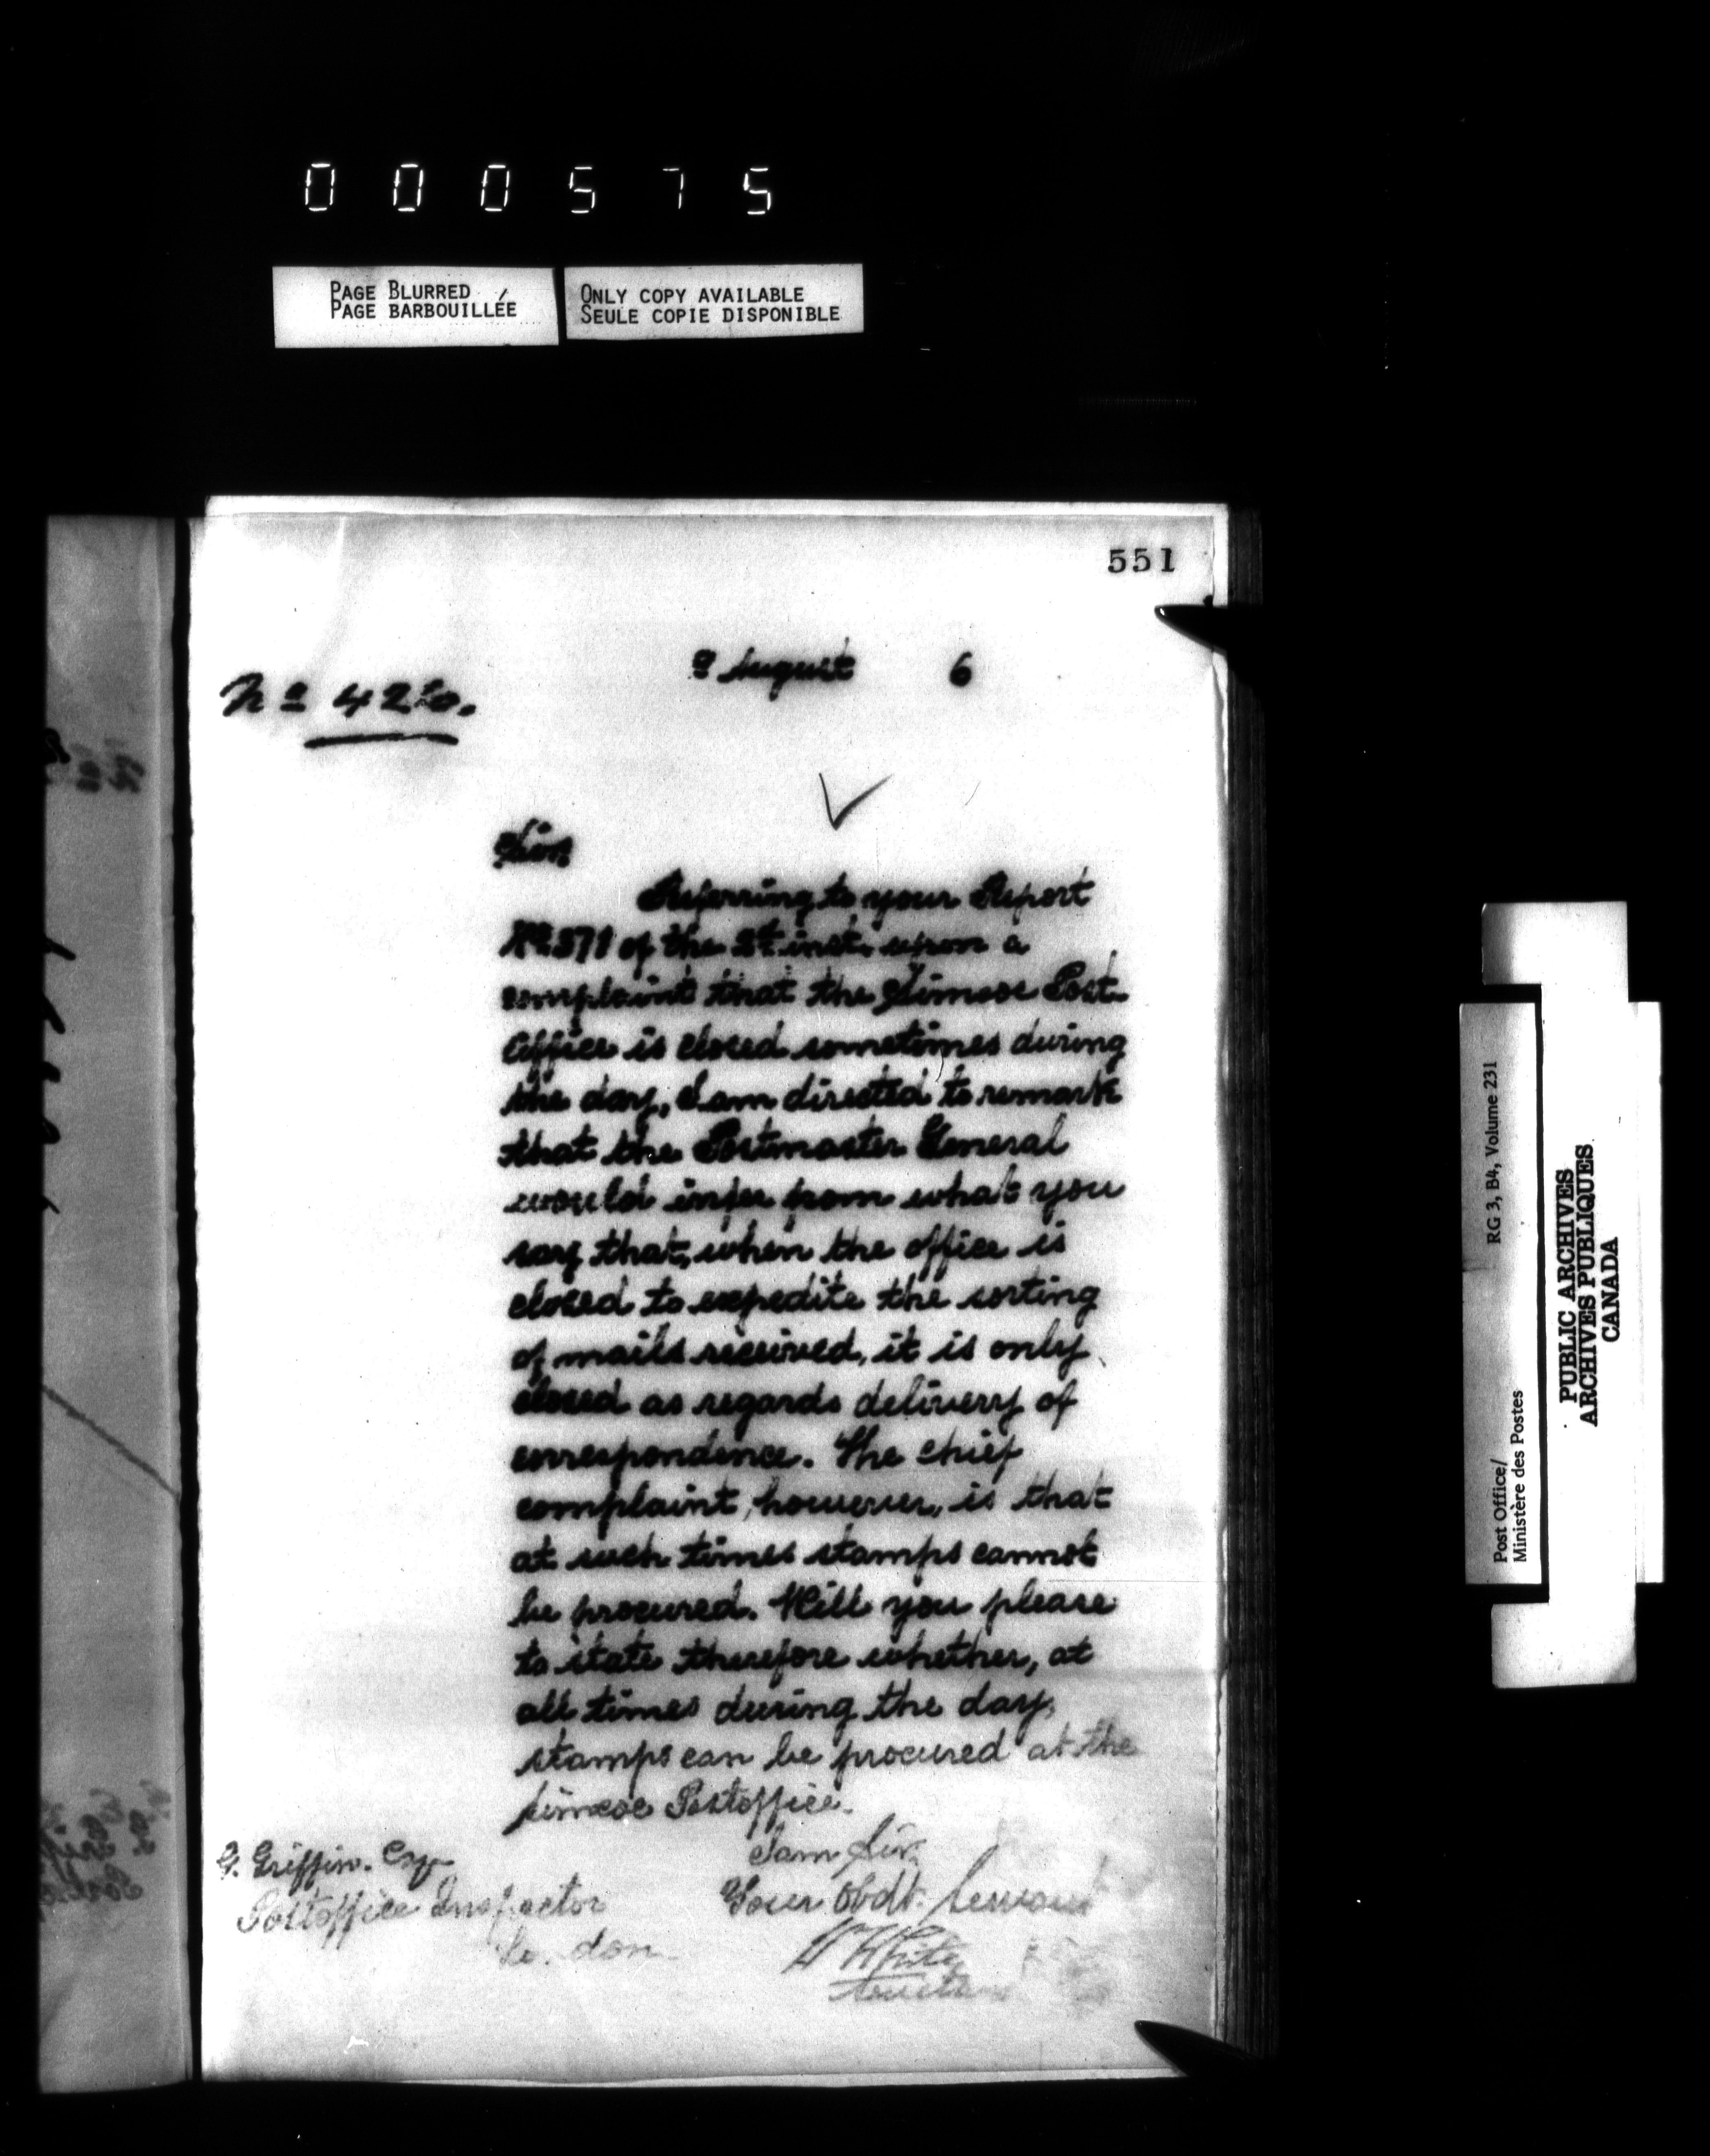 000575
PAGE BLURRED
PAGE BARBOUILLÉE
ONLY COPY AVAILABLE
SEULE COPIE DISPONIBLE
551
August 6
No
Sir
Referring to your Report
of the inst. upon a
complaint that the Simcoe Post
Office is closed sometimes during
the day, I am directed to remark
that the Postmaster General
would infer from what you
say that, when the office is
closed to expedite the sorting
of mails received, it is only
closed as regards delivery of
correspondence. The chief
complaint, however, is that
at such times stamps cannot
be procured. Will you please
to state therefore whether, at
all times during the day,
stamps can be procured at the
Simcoe Postoffice.
I am Sir,
Your Obdt. Servant
W White
G. Griffin. Esq
Postoffice Inspector
London
Post Office/
Ministère des Postes
RG 3, B4, Volume 231
PUBLIC ARCHIVES
ARCHIVES PUBLIQUES
CANADA